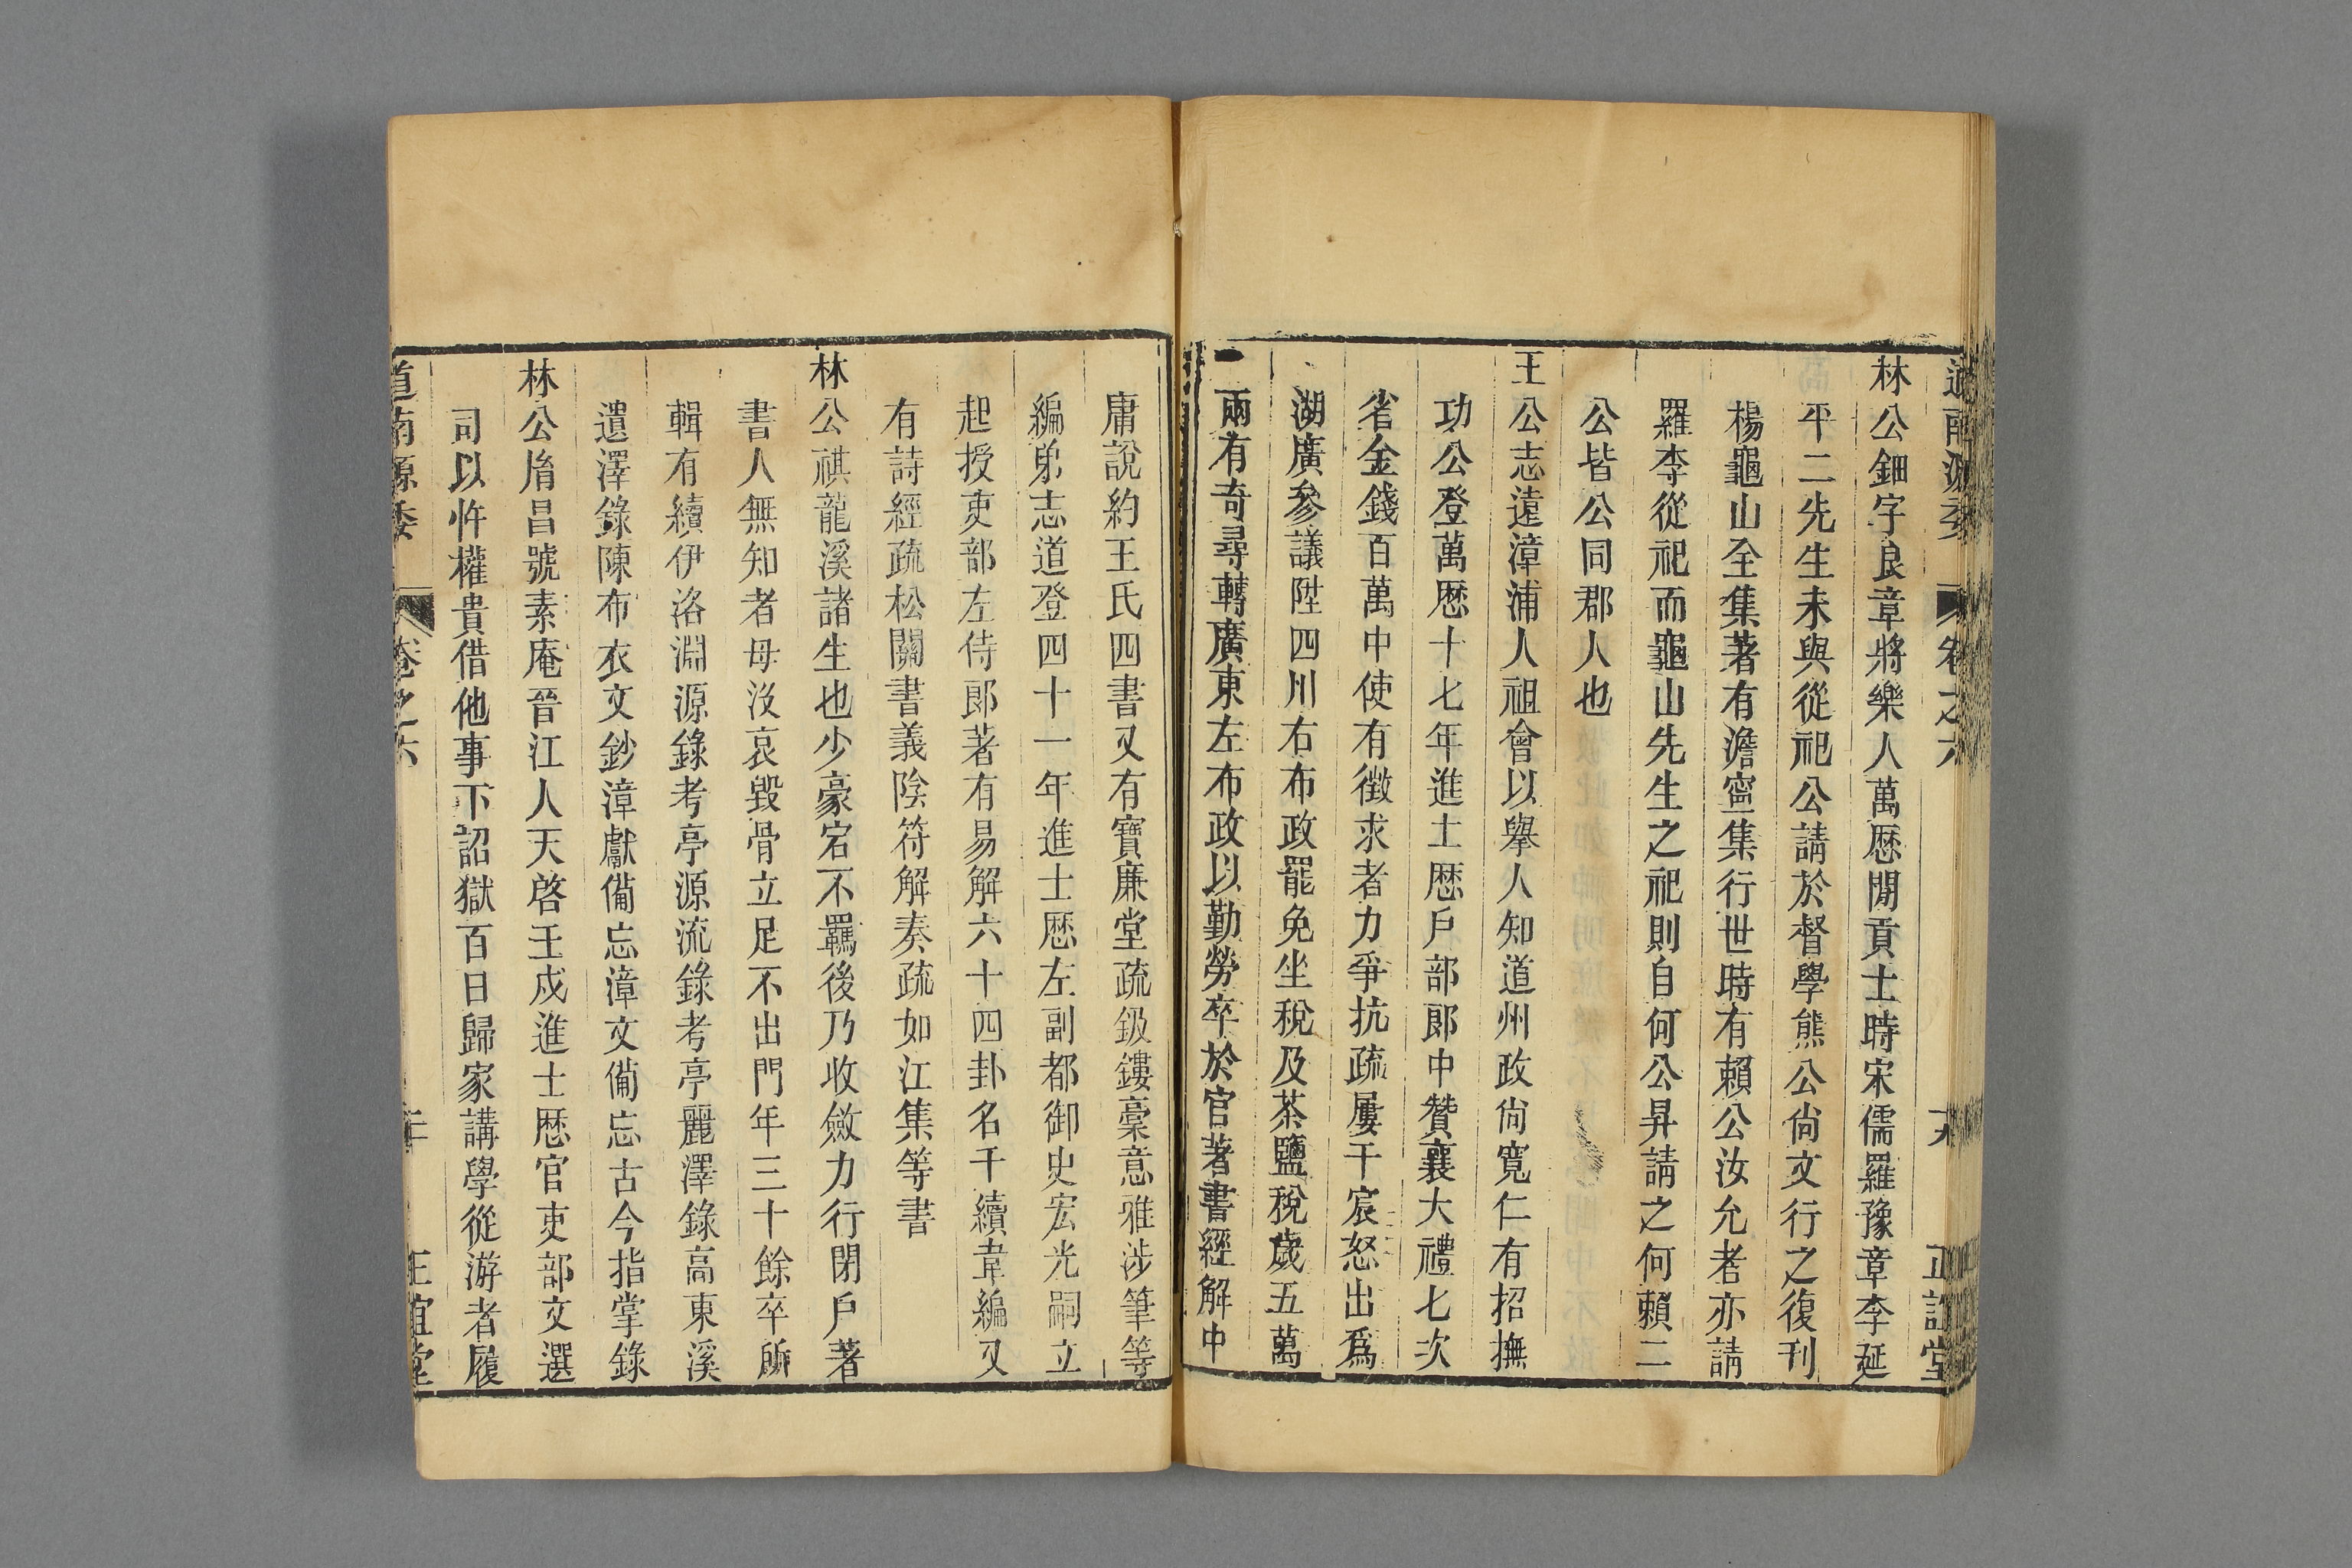 道南源委 卷之六 正誼堂
林公鈿字良章將樂人萬厯閒貢士時宋儒羅豫章李延
平二先生未與從祀公請於督學熊公尙文行之復刊
楊龜山全集著有澹寍集行世時有賴公汝允者亦請
羅李從祀而龜山先生之祀則自何公昇請之何賴二
公皆公同郡人也
王公志遠漳浦人祖會以舉人知道州政尙寬仁有招撫
功公登萬厯十七年進士厯戶部郎中贊襄大禮七次
省金錢百萬中使有徵求者力爭抗疏屢干宸怒出爲
湖廣參議陞四川右布政罷免坐稅及茶鹽稅歲五萬
兩有奇尋轉廣東左布政以勤勞卒於官著書經解中
庸說約王氏四書又有寶廉堂疏鈒鏤稾意雅涉筆等
編弟志道登四十一年進士厯左副都御史宏光嗣立
起授吏部左侍郎著有易解六十四卦名千續韋編又
有詩經疏松關書義陰符解奏疏如江集等書
林公祺龍溪諸生也少豪宕不羈後乃收斂力行閉戶著
書人無知者母沒哀毀骨立足不出門年三十餘卒所
輯有續伊洛淵源錄考亭源流錄考亭麗澤錄高東溪
遺澤錄陳布衣文鈔漳獻備忘漳文備忘古今指掌錄
林公胤昌號素庵晉江人天啓壬戍進士厯官吏部文選
司以忤權貴借他事下詔獄百日歸家講學從游者履
道南源委 卷之六 正誼堂